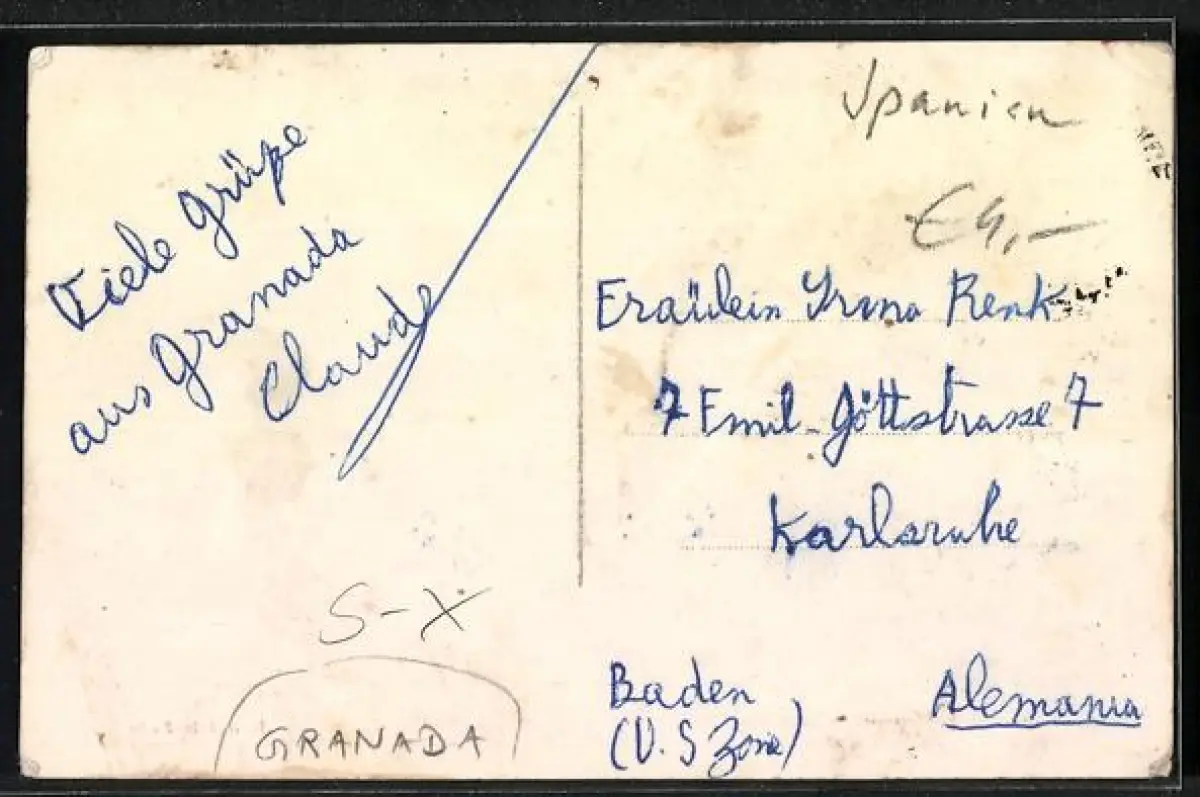 Viele Grüße
aus Granada
Claude
S-X
GRANADA
Spanien
€4,-
Fraülein Irma Renk
7 Emil-Göttstrasse 7
Karlsruhe
Baden
(U.S Zone)
Alemania